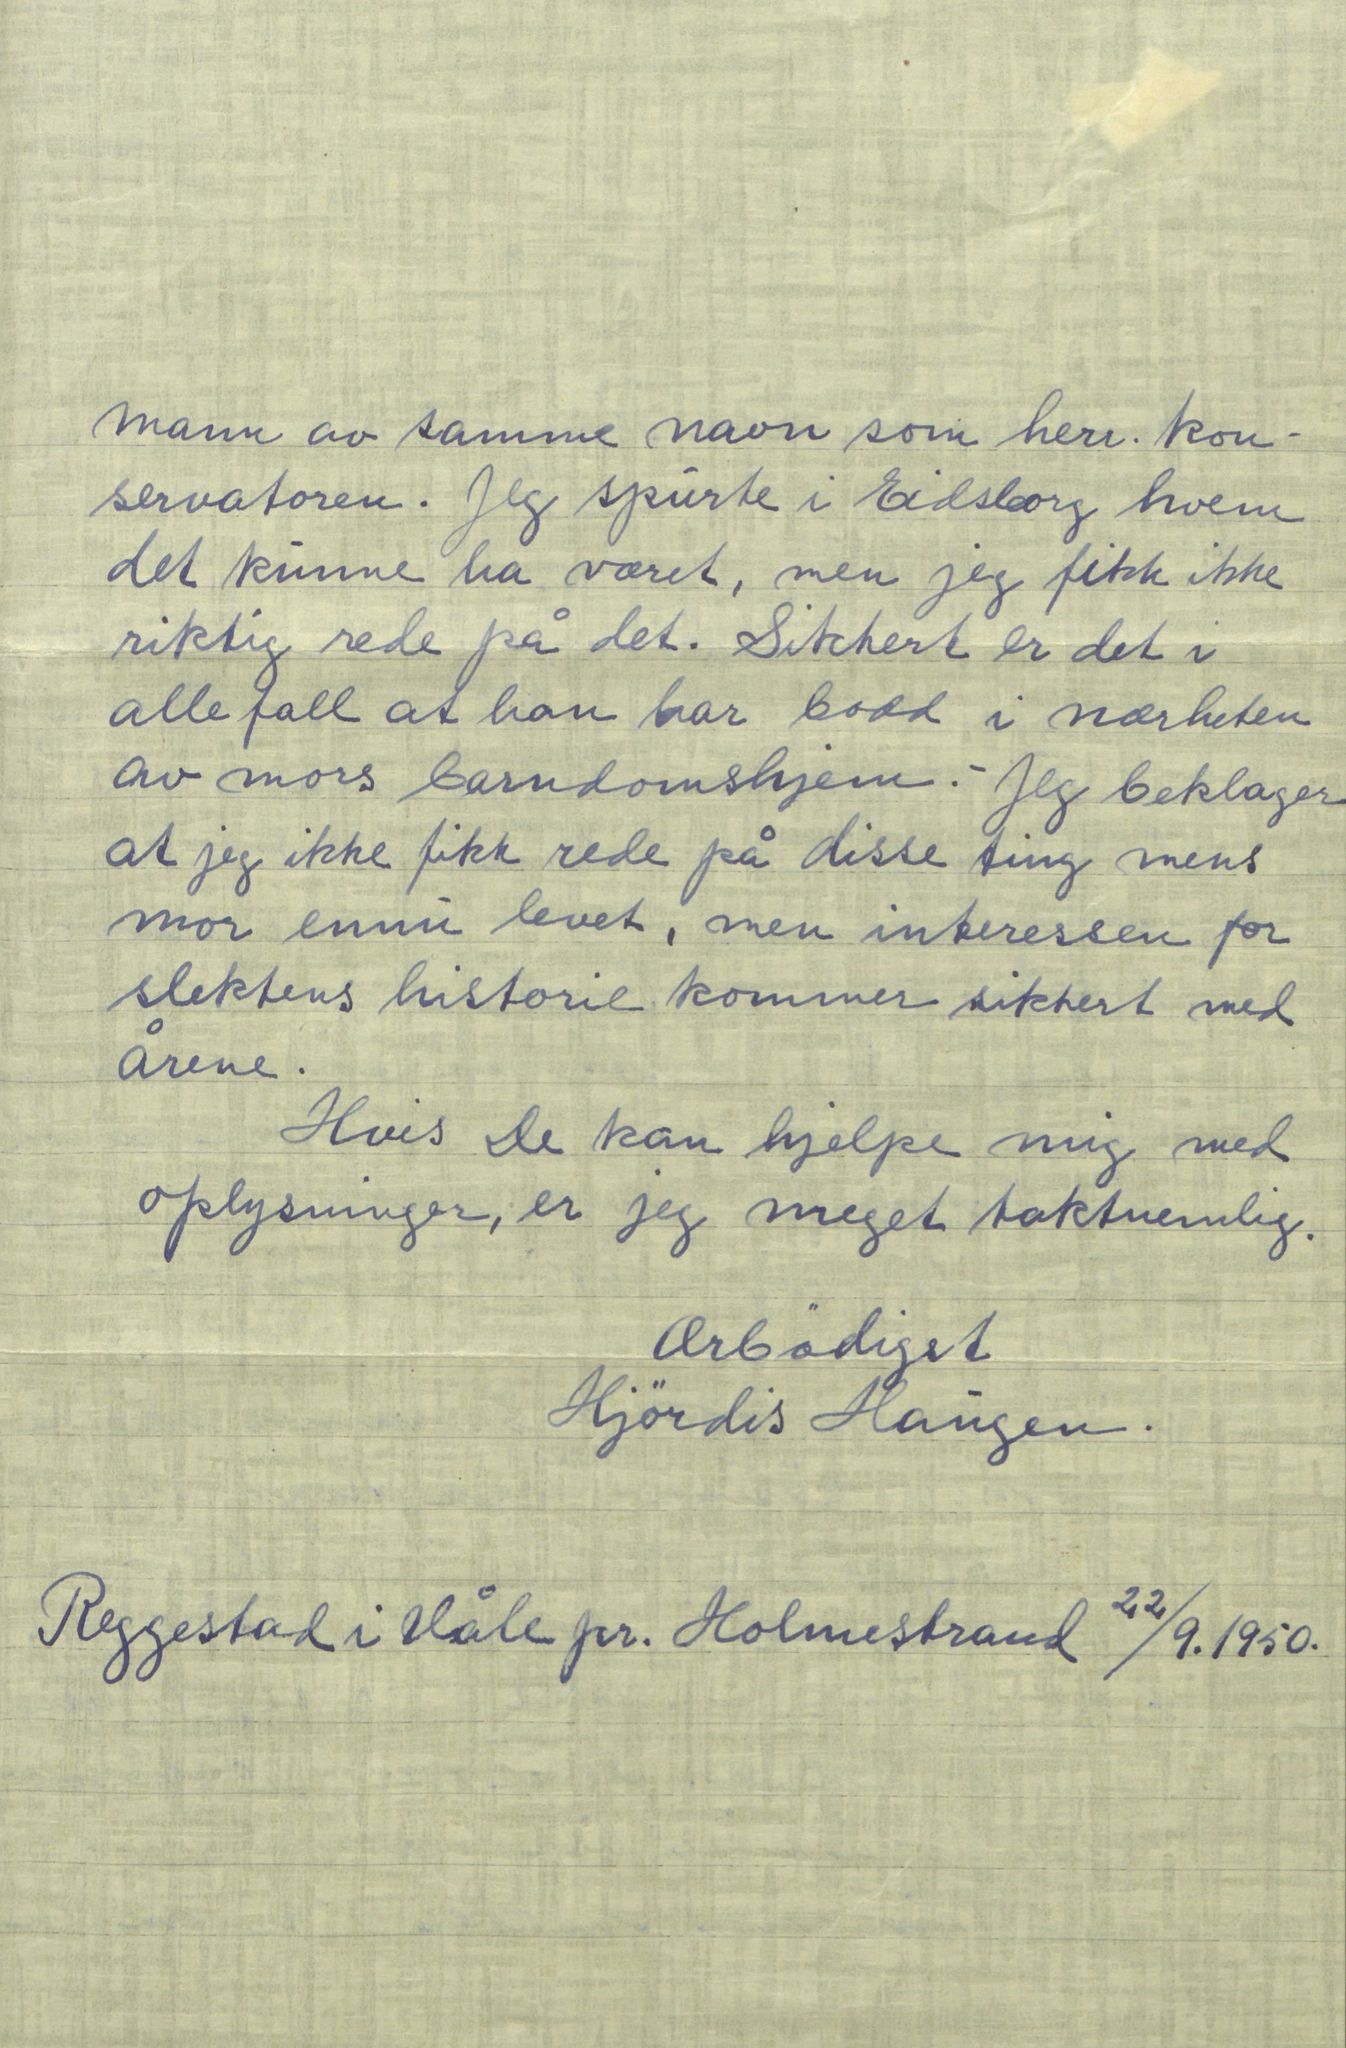 mann av samme navn som herr. kon-
servatoren. Jeg spurte i Eidsborg hvem
det kunne ha været, men jeg fikk ikke
riktig rede på det. Sikkert er det i
alle fall at han har bodd i nærheten
av mors barndomshjem. - Jeg beklager
at jeg ikke fikk rede på disse ting mens
mor ennu levet, men interessen for
slektens historie kommer sikkert med
årene.
Hvis De kan hjelpe mig med
oplysninger, er jeg meget taknemlig.
Ærbödigst
Hjördis Haugen.
Reggestad i Våle pr. Holmestrand 22/9.1950.